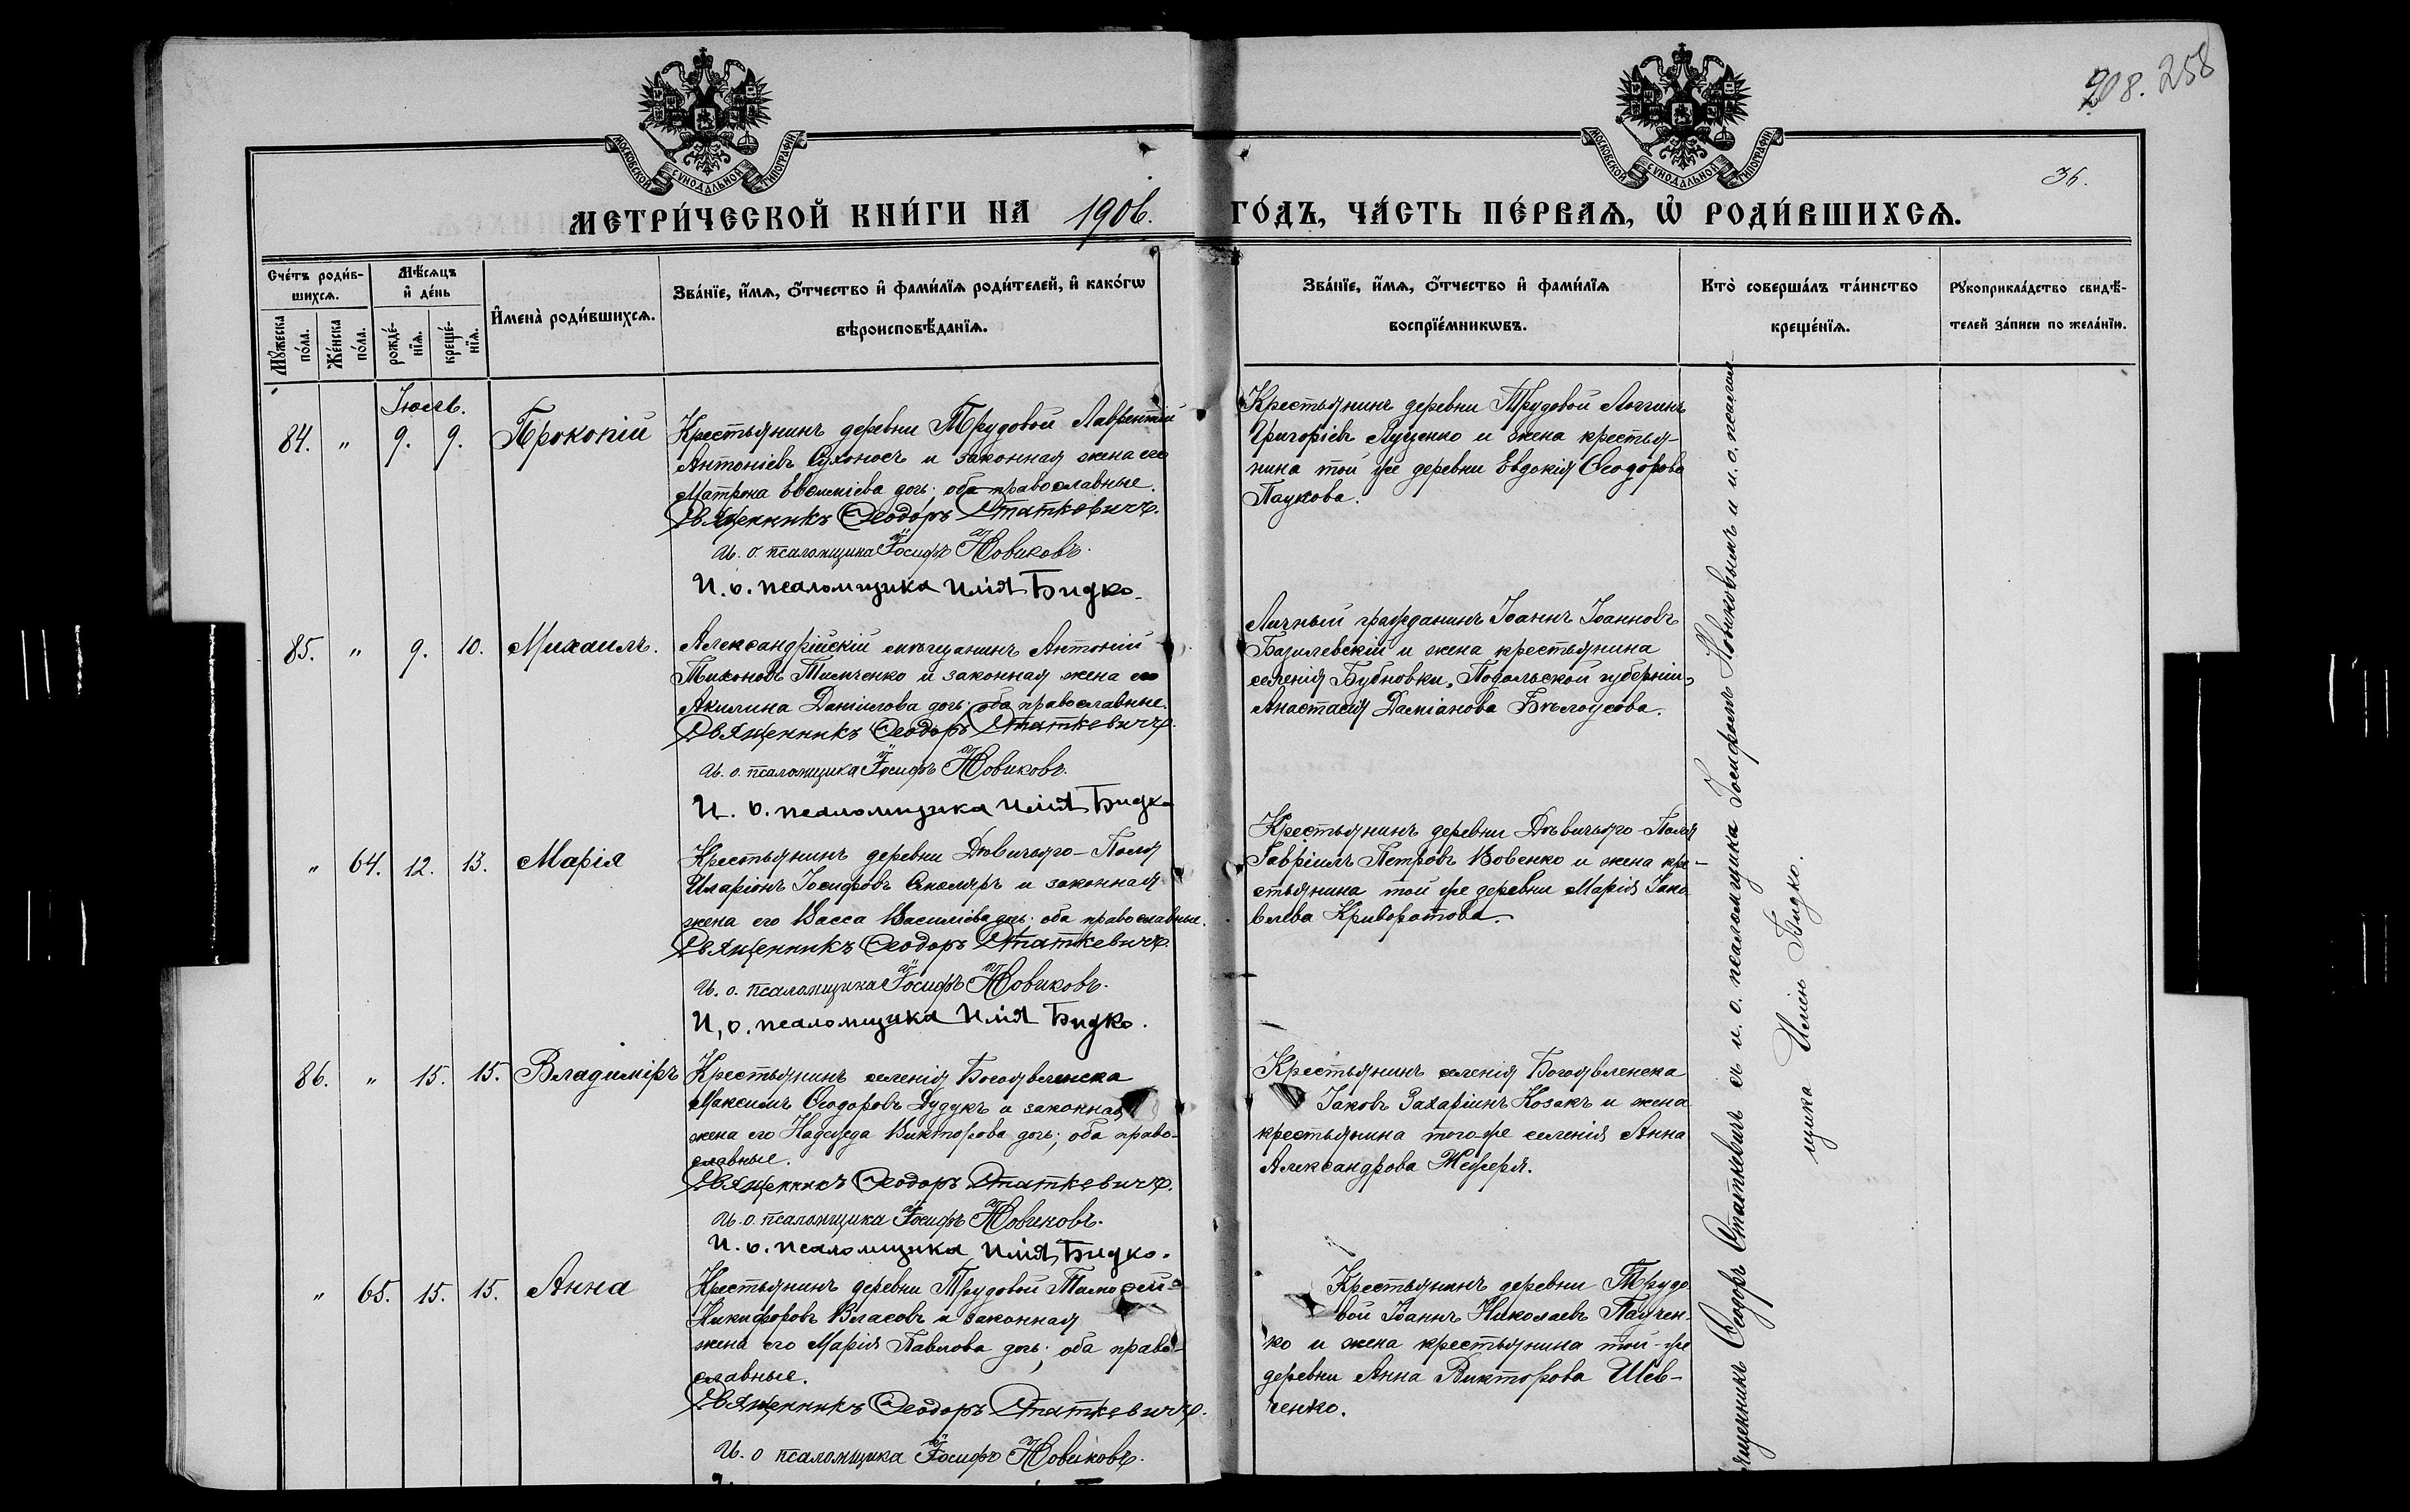 208. 258
36.
МОСКОВСКОЙ СѴНОДАЛЬНОЙ ТИПОГРАФІИ
МОСКОВСКОЙ СѴНОДАЛЬНОЙ ТИПОГРАФІИ
МЕТРИ́ЧЕСКОЙ КНИ́ГИ НА 1906. ГО́ДЪ, ЧА́СТЬ ПЕ́РВАѦ, Ѡ҆ РОДИ́ВШИХСѦ.
Сче́тъ роди́в-
шихсѧ.
Мѣ́сѧцъ
и҆ де́нь
И҆мена̀ роди́вшихсѧ.
Зва́нїе, и҆́мѧ, ѻ҆́тчество и҆ фами́лїѧ роди́телей, и҆ како́гѡ
вѣроисповѣ́данїѧ.
Мꙋ́жеска
по́ла.
Же́нска
по́ла.
рожде́-
нїѧ.
креще́-
нїѧ.
Зва́нїе, и҆́мѧ, ѻ҆́тчество и҆ фами́лїѧ
воспрїе́мникѡвъ.
Кто̀ соверша́лъ та́инство
креще́нїѧ.
Рꙋкоприкла́дство свидѣ́-
телей за́писи по жела́нїю.
Іюль.
84. " 9. 9. Прокопій
Крестьянинъ деревни Трудовой Лаврентій
Антоніевъ Сухоносъ и законная жена его
Матрона Евѳиміева дочь; оба православные.
Священникъ Ѳеодоръ Статкевичъ.
И. о. псаломщика Іосифъ Новиковъ.
И. о. псаломщика Илія Бидко.
Крестьянинъ деревни Трудовой Логгинъ
Григоріевъ Луценко и жена крестья-
нина той же деревни Евдокія Ѳеодорова
Паукова.
85. " 9. 10. Михаилъ.
Александрійскій мѣщанинъ Антоній
Тихоновъ Тимченко и законная жена его
Акилина Даніилова дочь; оба православные.
Священникъ Ѳеодоръ Статкевичъ.
И. о. псаломщика Іосифъ Новиковъ.
И. о. псаломщика Илія Бидко
Личный гражданинъ Іоаннъ Іоанновъ
Базилевскій и жена крестьянина
селенія Бубновки, Подольской губерніи,
Анастасія Даміанова Бѣлоусова.
" 64. 12. 13. Марія
Крестьянинъ деревни Дѣвичьяго-Поля
Иларіонъ Іосифовъ Скляръ и законная
жена его Васса Василіева дочь; оба православные.
Священникъ Ѳеодоръ Статкевичъ.
И. о. псаломщика Іосифъ Новиковъ.
И, о. псаломщика Илія Бидко.
Крестьянинъ деревни Дѣвичьяго-Поля
Гавріилъ Петровъ Вовенко и жена кре-
стьянина той же деревни Марія Іако
влева Криворотова.
86. " 15. 15. Владиміръ
Крестьянинъ селенія Богоявленска
Максимъ Ѳеодоровъ Дудукъ и законная
жена его Надежда Викторова дочь; оба право-
славные.
Священникъ Ѳеодоръ Статкевичъ.
И. о. псаломщика Іосифъ Новиковъ.
И. о. псаломщика Илія Бидко.
Крестьянинъ селенія Богоявленска
Іаковъ Захаріинъ Козакъ и жена
крестьянина того-же селенія Анна
Александрова
" 65. 15. 15. Анна
Крестьянинъ деревни Трудовой Тимоѳей
Никифоровъ Власовъ и законная
жена его Марія Павлова дочь; оба право-
славные.
Священникъ Ѳеодоръ Статкевичъ.
И. о псаломщика Іосифъ Новиковъ.
Крестьянинъ деревни Трудо
вой Іоаннъ Николаевъ Паучен-
ко и жена крестьянина той-же
деревни Анна Викторова Шев-
ченко.
Священникъ Ѳеодоръ Статкевичъ съ и. о. псаломщика Іосифомъ Новиковымъ и и. о. псалом
щика Иліею Бидко.